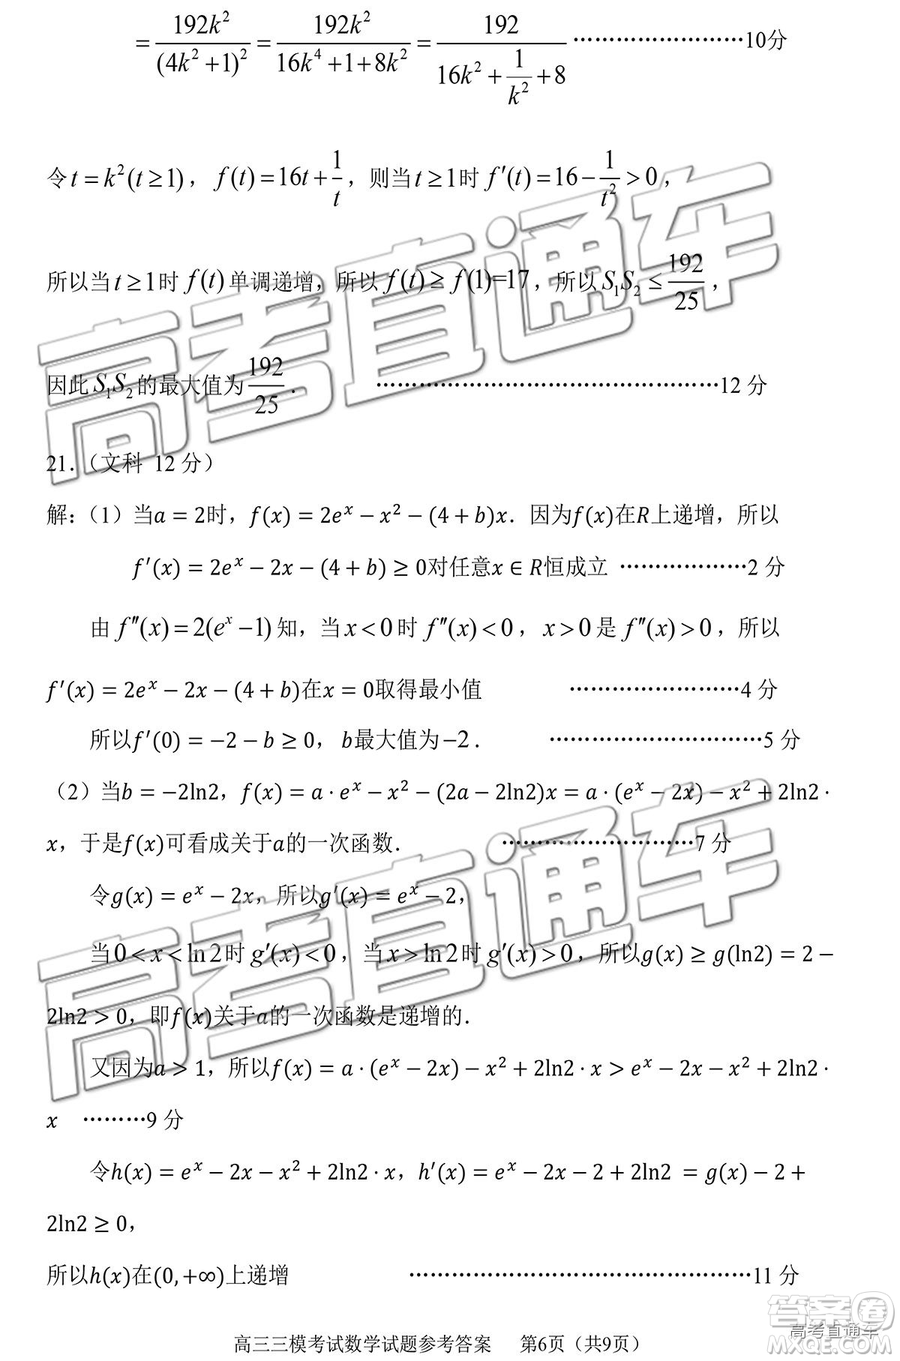 = 192k²/(4k²+1)² = 192k²/(16k⁴+1+8k²) = 192/(16k²+1/k²+8) ························10分
令t=k²(t≥1)，f(t)=16t+1/t，则当t≥1时f′(t)=16−1/t²>0，
所以当t≥1时f(t)单调递增，所以f(t)≥f(1)=17，所以S₁S₂≤192/25，
因此S₁S₂的最大值为192/25．················································12 分
21.（文科 12 分）
解:（1）当a=2时，f(x)=2eˣ−x²−(4+b)x．因为f(x)在R上递增，所以
f′(x)=2eˣ−2x−(4+b)≥0对任意x∈R恒成立 ··················2 分
由f″(x)=2(eˣ−1)知，当x<0时f″(x)<0，x>0是f″(x)>0，所以
f′(x)=2eˣ−2x−(4+b)在x=0取得最小值 ························4 分
所以f′(0)=−2−b≥0，b最大值为−2． ······························5 分
（2）当b=−2ln2，f(x)=a·eˣ−x²−(2a−2ln2)x=a·(eˣ−2x)−x²+2ln2·
x，于是f(x)可看成关于a的一次函数． ···························7 分
令g(x)=eˣ−2x，所以g′(x)=eˣ−2，
当0<x<ln2时g′(x)<0，当x>ln2时g′(x)>0，所以g(x)≥g(ln2)=2−
2ln2>0，即f(x)关于a的一次函数是递增的．
又因为a>1，所以f(x)=a·(eˣ−2x)−x²+2ln2·x>eˣ−2x−x²+2ln2·
x ·········9 分
令h(x)=eˣ−2x−x²+2ln2·x，h′(x)=eˣ−2x−2+2ln2=g(x)−2+
2ln2≥0，
所以h(x)在(0,+∞)上递增 ················································11 分
高三三模考试数学试题参考答案 第6页（共9页）
高考直通车
高考直通车
答案圈
高考直通车
MXQE.COM